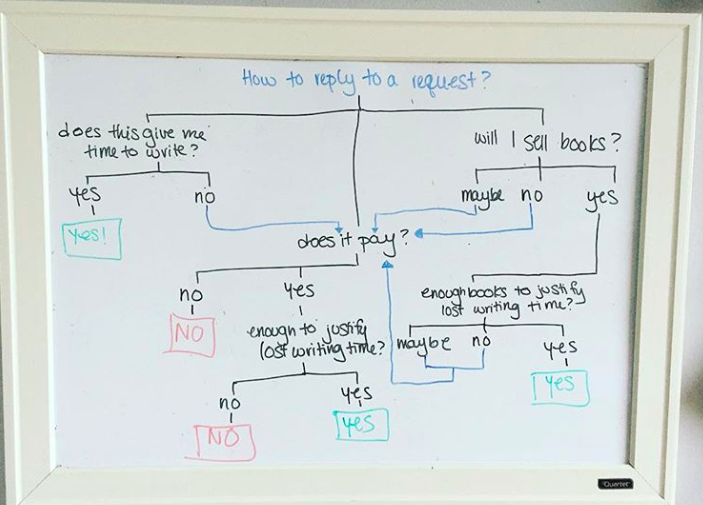 How to reply to a request?
does this give me
time to write?
will I sell books?
yes
no
maybe
no
yes
yes!
does it pay?
no
yes
enough books to justify
lost writing time?
NO
enough to justify
lost writing time?
maybe
no
yes
no
yes
yes
NO
yes
Quartet